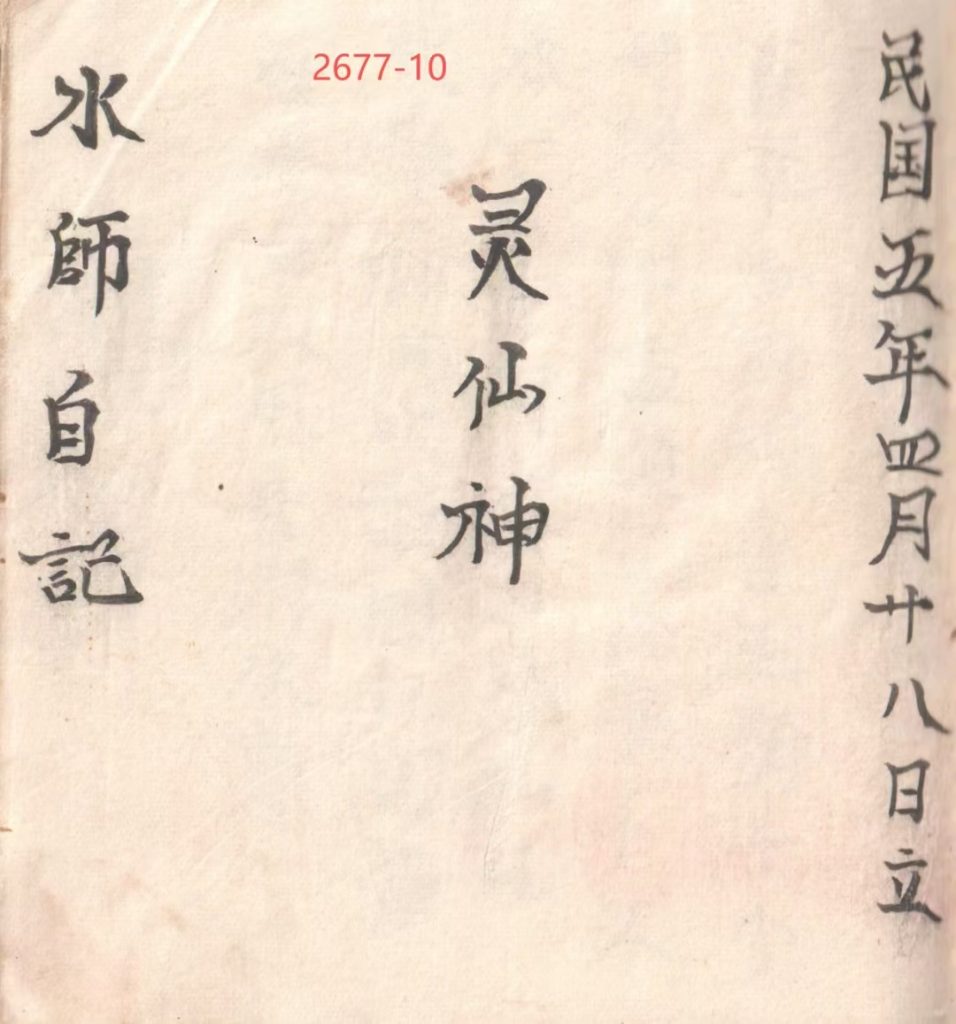 2677-10
民国五年四月廿八日立
灵仙神
水師自記